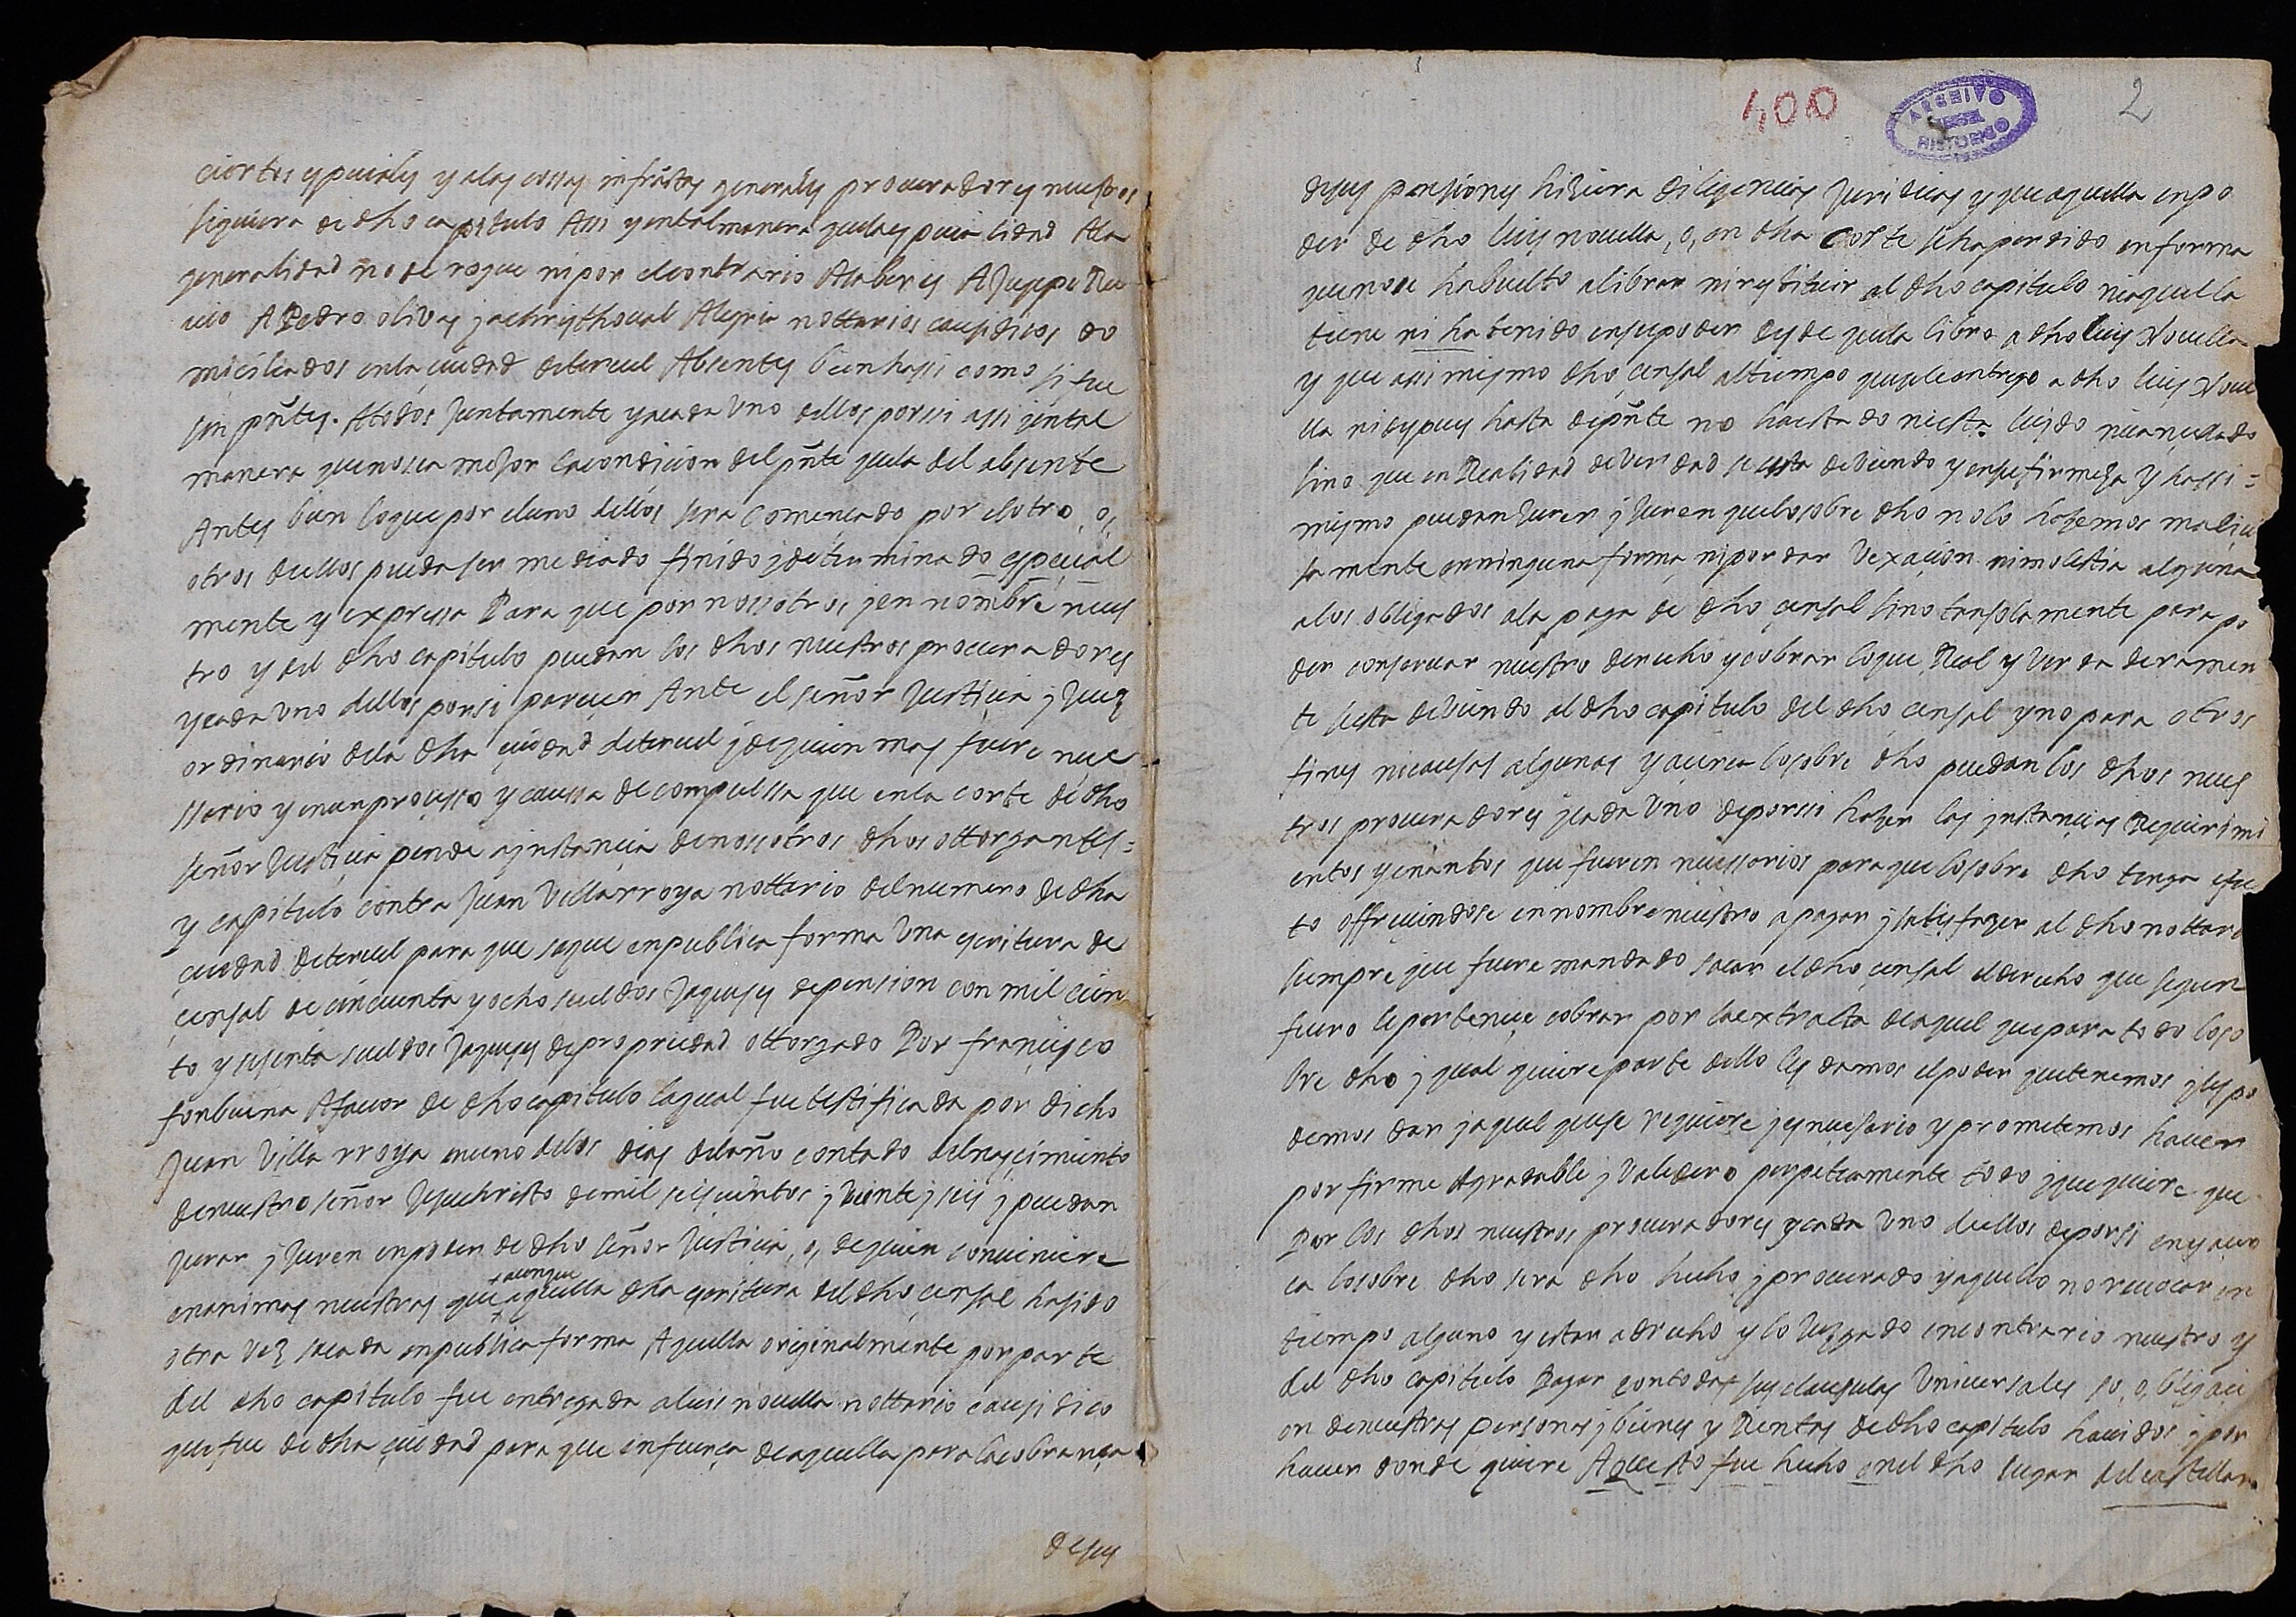 ciertos speciales y a las cossas infrãstas generales procuradores nuestros
siquiera de dho capitulo Assi y en tal manera que la especialidad Ala
generalidad no derogue ni por el contrario Asaber es A Jusepe
A Pedro olivas y a christhoual Alegria nottarios causidicos do
miciliados en la ciudad de teruel Absentes bien hassi como si fue
sen pñtes. Atodos Juntamente y acada Uno dellos por ssi assi y en tal
manera que no sea mejor la condicion del pñte que la del absente
Antes bien lo que por el uno dellos sera comencado por el otro, o,
otros dellos pueda ser mediado finido y determinado especial
mente y expressa Para que por nossotros y en nombre nues
tro y del dho capitulo puedan los dhos nuestros procuradores
y cada uno dellos por si parecer Ante el señor Justicia y Juez
ordinario dela dha ciudad de teruel y de quien mas fuere nece
ssario y en un processo y caussa de compulssa que en la corte de dho
señor Justicia pende a instancia de nossotros dhos ottorgantes =
y capitulo contra Juan Villarroya nottario del numero de dha
ciudad de teruel para que saque en publica forma Una escritura de
censal de cincuenta y ocho sueldos Jaqueses de pension con mil cien
to y sesenta sueldos Jaqueses de propriedad ottorgado Por francisco
fonbuena Afauor de dho capitulo la qual fue testificada por dicho
Juan Villa rroya en uno de los dias del año contado del nascimiento
de nuestro señor Jesuchristo de mil seiscientos y veinte y seis y puedan
Jurar y Juren en poder de dho señor Justicia, o, de quien conuiniere
en animas nuestras que aunque aquella dha escritura del dho censal ha sido
otra vez sacada en publica forma Aquella originalmente por parte
del dho capitulo fue entregada a luis nouella nottario causidico
que fue de dha ciudad para que en fuerça de aquella para la cobrança
de sus
400
ARCHIVO
HISTORICO
2
de sus pensiones hiziera diligencias Juridicas y que aquella en po
der de dho luis nouella, o, en dha corte se ha perdido en forma
que no se ha buelto a librar ni restituir al dho capitulo ni aquella
tiene ni ha tenido en su poder desde que la libro a dho luis Nouella
y que assi mismo dho censal al tiempo que se le entrego a dho luis Noue
lla ni despues hasta de pñte no ha estado ni esta luido ni ancelado
sino que en Realidad de verdad se esta deviendo y en su firmeza y hassi =
mismo puedan Jurar y Juren que lo sobre dho no lo hazemos malicio
samente en ninguna forma ni por dar Vexacion ni molestia alguna
a los obligados a la paga de dho censal sino tan solamente para po
der conseruar nuestro derecho y cobrar lo que Real y verdaderamen
te se esta deviendo al dho capitulo del dho censal y no para otros
fines ni causas algunas y acerca lo sobre dho puedan los dhos nues
tros procuradores y cada Uno de por ssi hazer las instancias Requirimi
entos y enantos que fueren necessarios para que lo sobre dho tenga efec
to offreciendose en nombre nuestro a pagar y satisfazer al dho nottario
siempre que fuere mandado sacar el dho censal el derecho que segun
fuero le pertenece cobrar por la extracta de aquel que para todo lo so
bre dho y qual quiere parte dello les damos el poder que tenemos y les po
demos dar y aquel que se requiere y es necesario y prometemos hauer
por firme Agradable y Valedero perpetuamente todo y que quiere que
Por los dhos nuestros procuradores y cada Uno dellos de por si en y acer
ca lo sobre dho sera dho hecho y procurado y aquello no reuocar en
tiempo alguno y estar a drecho y lo Juzgado en contrario nuestro y
del dho capitulo Pagar con todas sus clausulas Uniuersales so, obligaci
on de nuestras personas y bienes y Rentas de dho capitulo hauidos y por
hauer donde quiere Aquesto fue hecho en el dho lugar del castellar